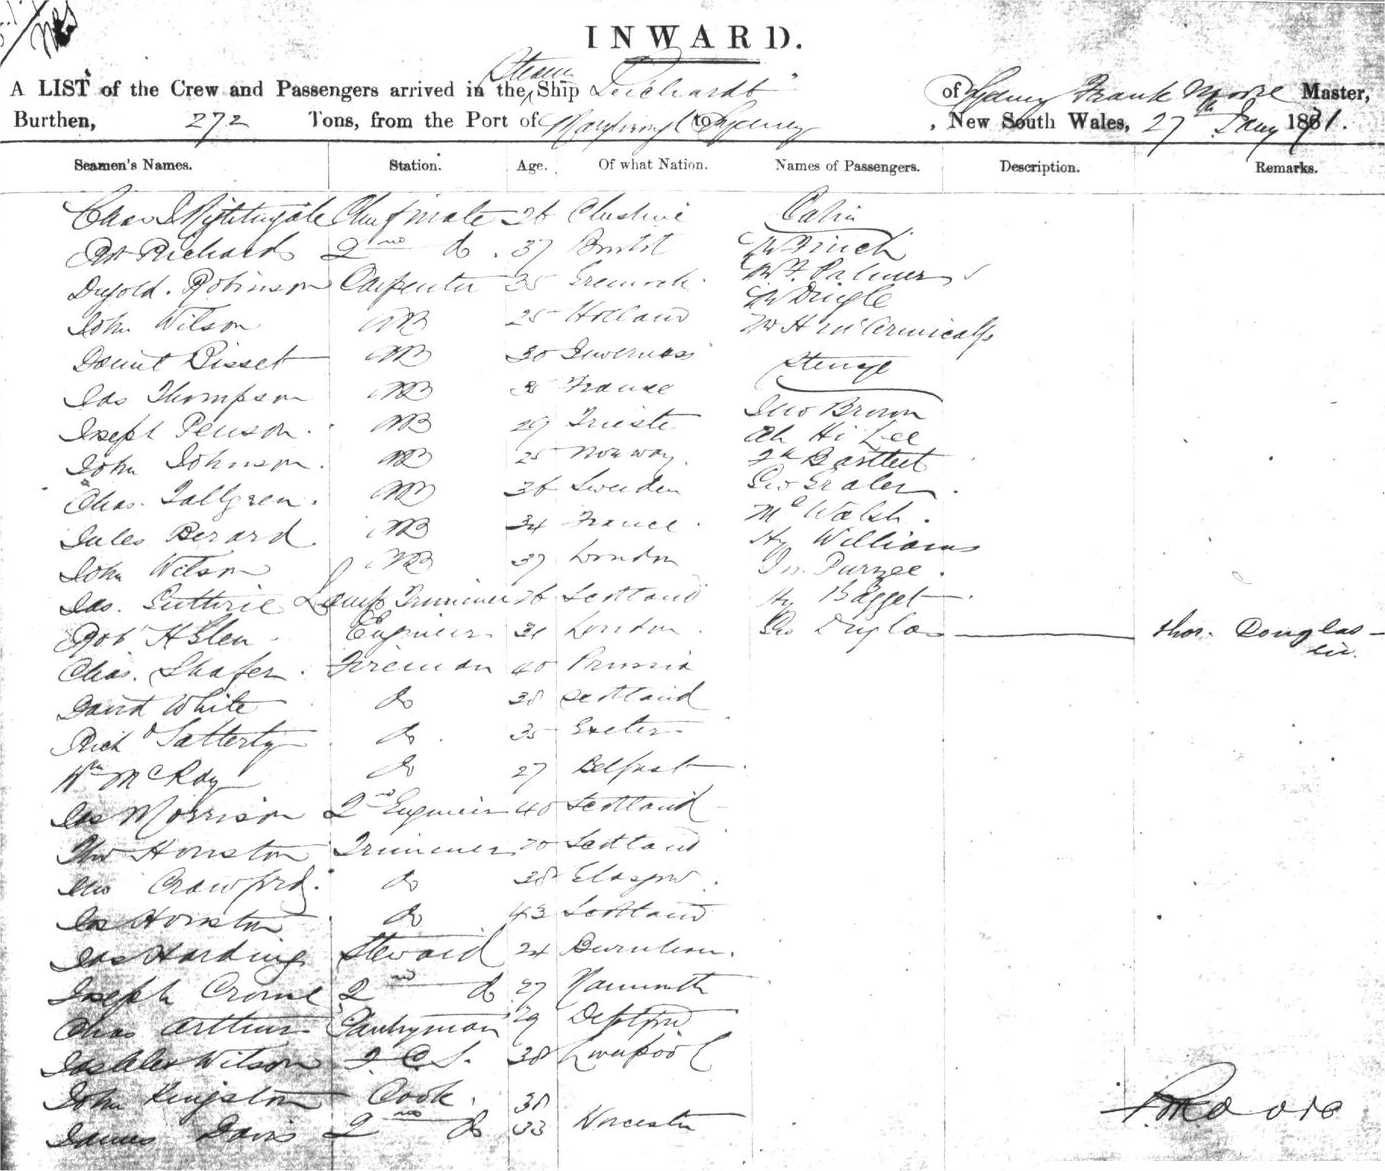 INWARD.
A LIST of the Crew and Passengers arrived in the Steam Ship Leichardt of Sydney Frank Moore Master,
Burthen, 272 Tons, from the Port of to Sydney , New South Wales, 27th Jany 1871.
Seamen's Names. Station. Age. Of what Nation. Names of Passengers. Description. Remarks.
Chas Nightingale Chief mate 26 Cabin
Rt Richards 2nd do . 37 Bristol Mr Finch
Dugold. Robinson Carpenter 35 Greenock. Mr F. Palmer
Mr Dingle
John Wilson AB 25 Holland Mr H McCarmicalfs
Bisset AB 30 Inverness Sterage
Jas Thompson AB France
Jno Brown
Joseph Penson. AB 29 Trieste Ah Hi Lee
John Johnson. AB 25 Norway. Bartlett
Chas. Tallgren. AB 36 Sweden Geo
Walsh.
Jules Berard. AB 34 France. Hy Williams
John Wilson AB 37 London Jn. Purzee.
Jas. Guthrie Lamp Trimmer 26 Scotland Hy Bagget
Robt H Glen Engineer 31 London. Geo Duglas Thos. Douglas
Chas. Shafer. Fireman 40 Prussia
David White do 38 Scotland
Rich do. 35 Exeter
Wm McRoy do 27 Belfast
Jas Morrison 2nd Engineer 40 Scotland
Thos Houston Trimmer 20 Scotland
Jno Crawford. do 38 Glasgow.
Jas Houston do 43 Scotland
Jas Harding Steward 24
Joseph Crowl 2nd do 27
Chas Arthur Pantryman 29 Deptford
Jas Alex Wilson F. C. S. 38 Liverpool
John Kingston Cook. 38
James Davis 2nd do 33 Worcester
F. Moore